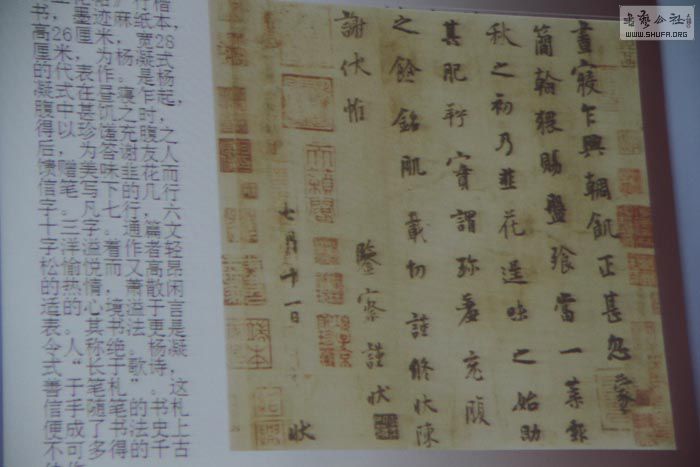 行楷本，
书，墨迹麻纸，
高26厘米，宽28
厘米，为杨凝式
的代表作。是杨
凝式在昼寝乍起，
腹中甚饥之时，
得以珍馐充腹之
后，为答谢友人
馈赠美味韭花而
信笔写下的几行
字。凡七行，六
十三字。通篇文
字洋溢着作者轻
松愉悦而又高昂
的热情，萧散闲
适的心境溢于言
表。其书法更是
令人称绝。杨凝
式“长于歌诗，
善于笔札”。这
信手随笔的书札
便成了书法史上
不可多得的千古
晝寢乍興輖飢正甚忽蒙
簡翰猥賜盤飧當一葉報
秋之初乃韭花逞味之始助
其肥羜實謂珍羞充腹
之餘銘肌載切謹修狀陳
謝伏惟
鑒察謹狀
七月十一日 狀
WWW.SHUFA.ORG